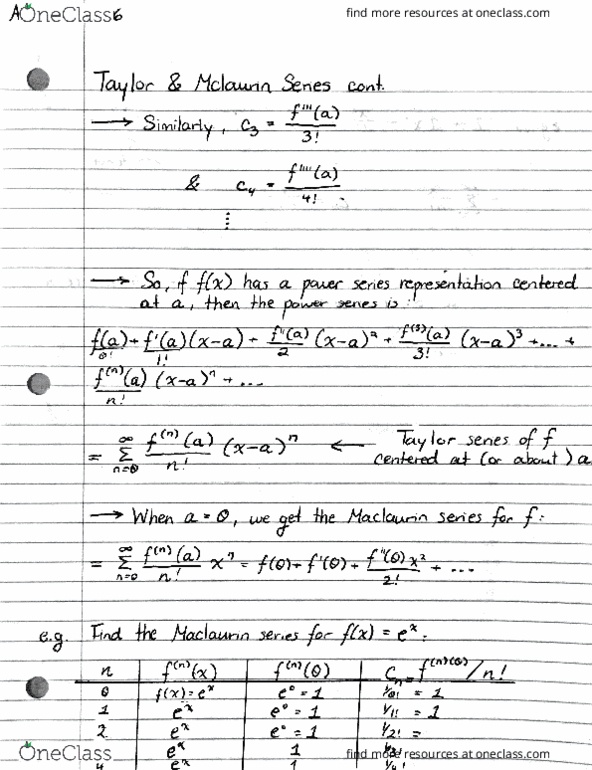 OneClass
find more resources at oneclass.com
Taylor & Mclaurin Series cont.
→ Similarly, c₃ = f'''(a)/3!
& c₄ = f''''(a)/4!
⋮
→ So, if f(x) has a power series representation centered
at a, then the power series is:
f(a)/0! + f'(a)/1! (x-a) + f''(a)/2 (x-a)² + f⁽³⁾(a)/3! (x-a)³ + ... +
f⁽ⁿ⁾(a)/n! (x-a)ⁿ + ...
= ∞ Σ n=0 f⁽ⁿ⁾(a)/n! (x-a)ⁿ ← Taylor series of f
centered at (or about) a
→ When a = 0, we get the Maclaurin series for f:
= ∞ Σ n=0 f⁽ⁿ⁾(a)/n! xⁿ = f(0) + f'(0) + f''(0)x²/2! + ...
e.g. Find the Maclaurin series for f(x) = eˣ.
n f⁽ⁿ⁾(x) f⁽ⁿ⁾(0) Cₙ = f⁽ⁿ⁾⁽⁰⁾/n!
0 f(x) = eˣ e⁰ = 1 1/0! = 1
1 eˣ e⁰ = 1 1/1! = 1
2 eˣ e⁰ = 1 1/2! =
eˣ 1 1/3!
4 eˣ 1 1/4!
OneClass
find more resources at oneclass.com